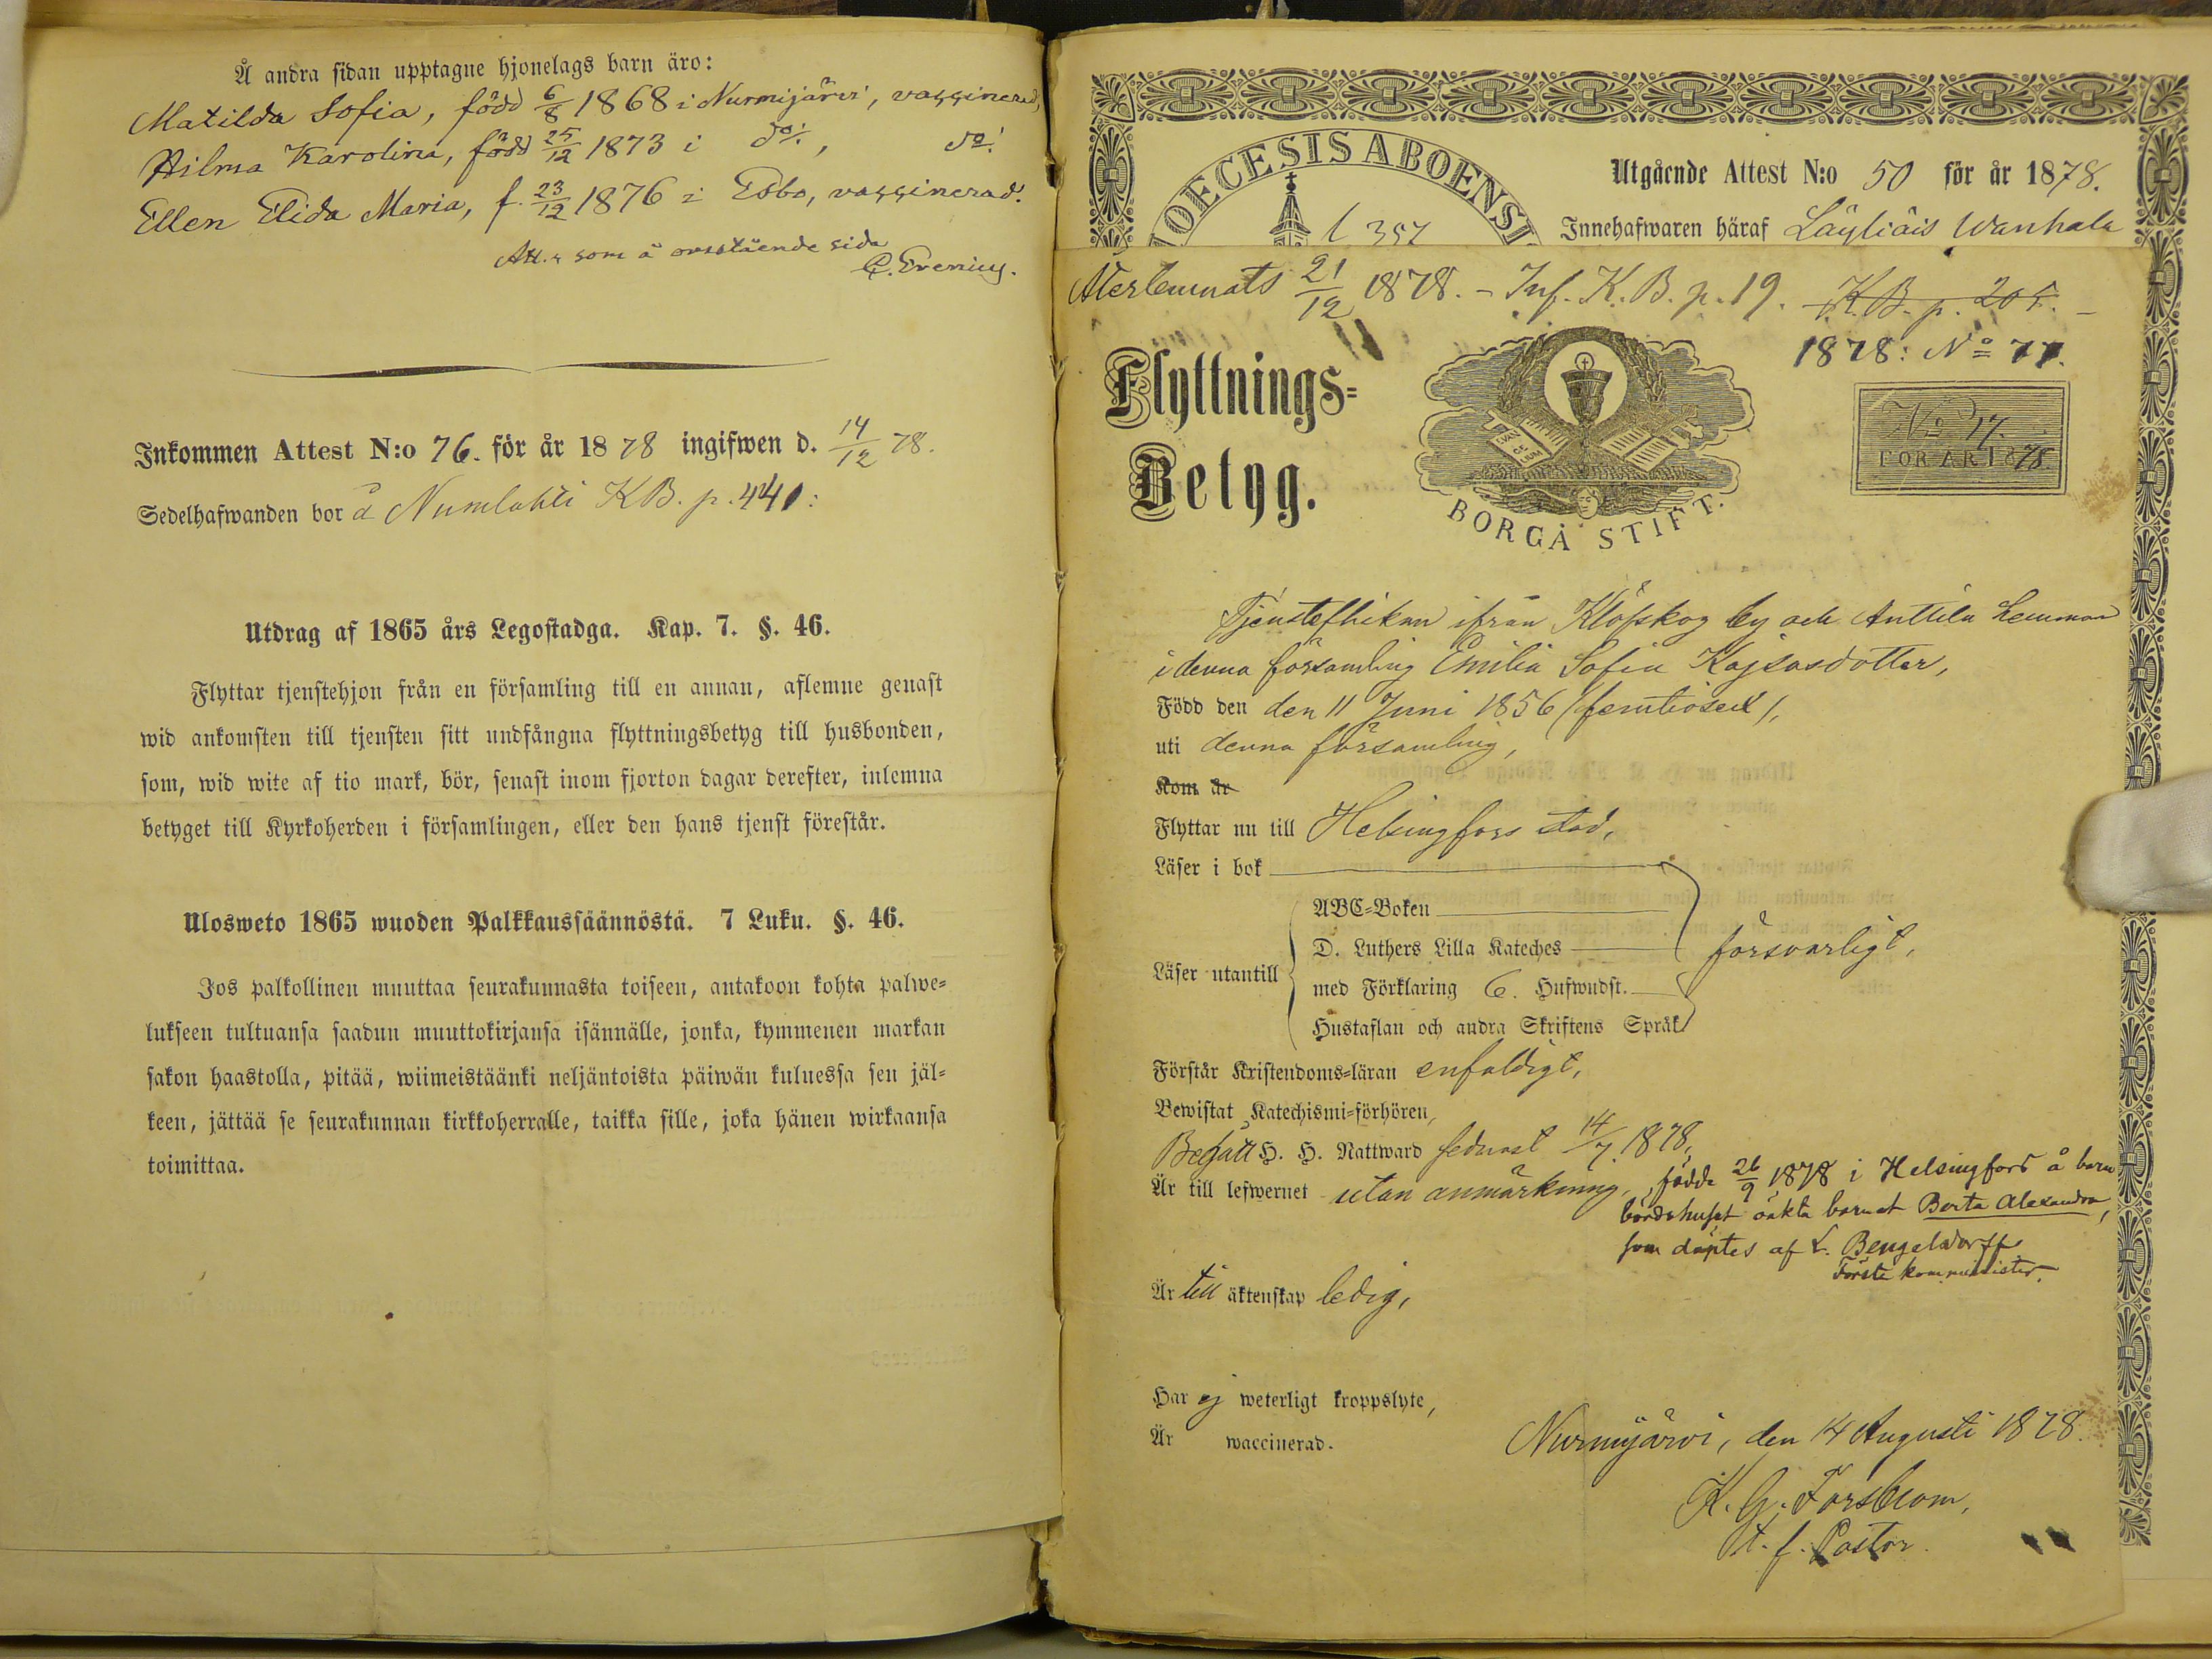 Å andra sidan upptagne hjonelags barn äro:
Matilda Sofia, född 6/8 1868 i Nurmijärvi, vaccinerad,
Hilma Karolina, född 25/12 1873 i do:, do:
Ellen Elida Maria, f. 23/12 1876 i Esbo, vaccinerad.
Att. som å omstående sida
C. Evenius.
Inkommen Attest N:o 76. för år 1878 ingifwen d. 14/12 78.
Sedelhafwanden bor å Numlahti KB. p. 441:
Utdrag af 1865 års Legostadga. Kap. 7. §. 46.
Flyttar tjenstehjon från en församling till en annan, aflemne genast
wid ankomsten till tjensten sitt undfångna flyttningsbetyg till husbonden,
som, wid wite af tio mark, bör, senast inom fjorton dagar derefter, inlemna
betyget till Kyrkoherden i församlingen, eller den hans tjenst förestår.
Ulosweto 1865 wuoden Palkkaussäännöstä. 7 Luku. §. 46.
Jos palkollinen muuttaa seurakunnasta toiseen, antakoon kohta palwe-
lukseen tultuansa saadun muuttokirjansa isännälle, jonka, kymmenen markan
sakon haastolla, pitää, wiimeistäänki neljäntoista päiwän kuluessa sen jäl-
keen, jättää se seurakunnan kirkkoherralle, taikka sille, joka hänen wirkaansa
toimittaa.
IOECESIS ABOENSI
Utgående Attest N:o 50 för år 1878.
l 357
Innehafwaren häraf Läyliäis Wanhala
Återlemnats 21/12 1878. - Inf. K.B. p. 19. K.B. p. 205. -
1878: No 77.
Flyttnings-
Betyg.
EVAN
GE
LIUM
BORGÅ STIFT.
No 17.
FÖR ÅR 1878.
Tjensteflickan ifrån Klöfskog by och Anttila hemman
i denna församling Emilia Sofia Kajsasdotter,
Född den den 11 Juni 1856 (femtiosex),
uti denna församling,
Kom år
Flyttar nu till Helsingfors stad,
Läser i bok
ABC-Boken
D. Luthers Lilla Kateches
försvarligt,
Läser utantill
med Förklaring 6. Hufwudst.
Hustaflan och andra Skriftens Språk
Förstår Kristendoms-läran enfaldigt,
Bewistat Katechismi-förhören,
Begått H. H. Nattward sednast 14/7 1878,
Är till lefwernet utan anmärkning, födde 26/9 1878 i Helsingfors å barn
bördshuset oäkta barnet Berta Alexandra,
som döptes af L. Bengelsdorff
Förste komminister.
Är till äktenskap ledig,
Har ej weterligt kroppslyte,
Är waccinerad.
Nurmijärvi, den 14 Augusti 1878.
K. G. Forsblom,
t. f. Pastor.